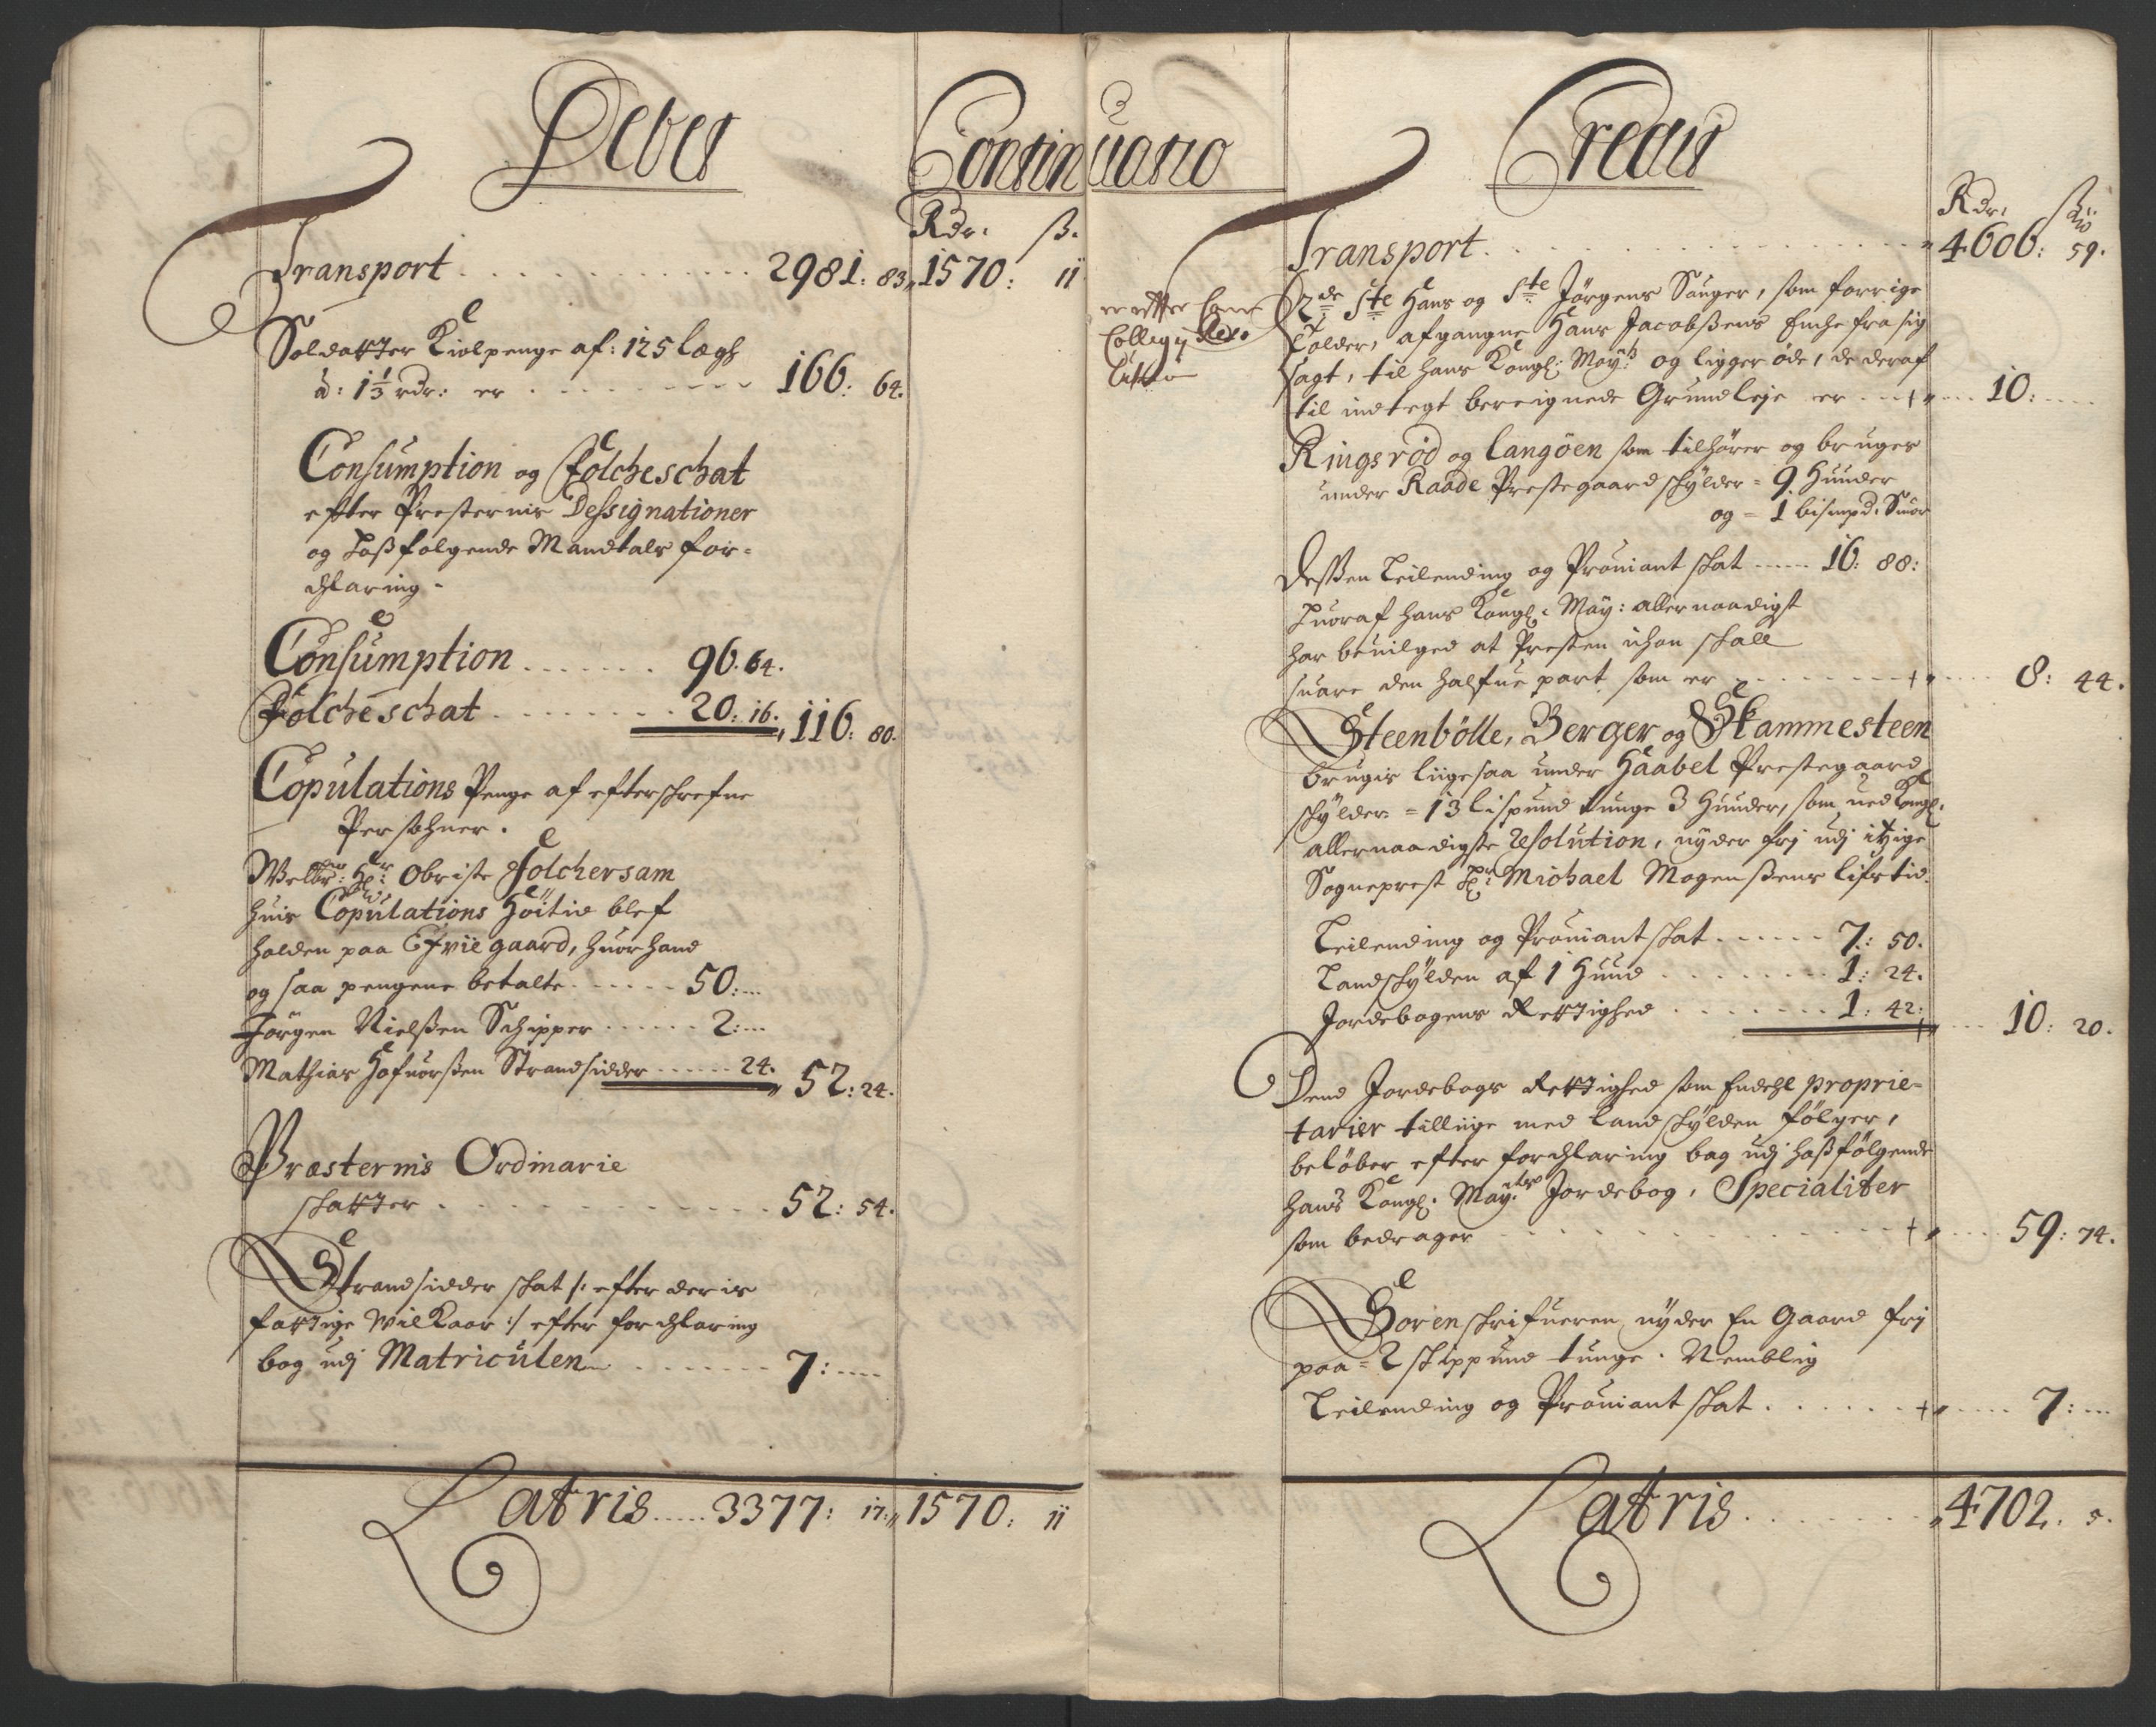 Debet
Continuatio
Rdr: ß.
Transport 2981: 83 1570: 11
Soldatter Kiolpenge af: 125 Lægh
à: 1 1/3 rdr: er 166: 64.
Consumption og Folcheschat
efter Presternis Dessignationer
og Hoßfølgende Mandtals for=
chlaring.
Consumption 96. 64.
Folcheschat 20: 16. 116: 80.
Copulations Penge af efterschrefne
Persohner.
Welbr: Hr: Obriste Folchersam
huis Copulations Höitid blef
holden paa Efvie gaard, huor hand
og saa pengene betalte 50:
Jörgen Nielßen Schipper 2:
Mathias Hafuorßen Strandsidder 24. 52: 24.
Præsternis Ordinarie
skatter 52: 54.
Strandsidder skat /: efter deris
fattige Wilkaar :/ efter forchlaring
bag udj Matriculen 7:
Latris 3377: 17: 1570: 11
Credit
Rdr: ß:
Transport 4606: 59.
er efter Cam
Collegij Reso
lution
2de Ste Hans og Ste Jörgens Sauger, som forrige
Tolder, afgangne Hans Jacobßens Enche fra sig
sagt, til hans Kongl: May: og ligger øde, de deraf
til indtegt beregnede Grundleje er 10:
Ringsröd og Langöen som tilhörer og bruges
under Raade Prestegaard schylder = 9 Hunder
og = 1 bismpd: Smör
Deßen Leilending og Prouiant skat 16: 88:
Huoraf hans Kongl: May: allernaadigst
har beuilged at Presten ichon skall
suare den halfue part, som er 8: 44.
Steenbölle, Berger og Skammesteen
brugis liigesaa under Haabel Prestegaard
schylder = 13 lispund tunge 3 Hunder, som ued Kongl:
allernaadigste Resolution, nyder frj udj itzige
Sogneprest Hr: Michael Mogenßens lifstid.
Leilending og Prouiant skat 7: 50.
Landschylden af 1 Hund 1: 24.
Jordebogens Rettighed 1: 42: 10: 20.
Dend Jordebogs Rettighed som Endehl proprie=
tarier tilliige med Landschylden fölger,
belöber efter forchlaring bag udj hoßfölgende
hans Kongl: May: Jordebog, Specialiter
som bedrager 59: 74.
Sorenschrifueren nyder En Gaard frj
paa = 2 skippund tunge. Nemblig
Leilending og Prouiant skat 7:
Latris 4702. 5.